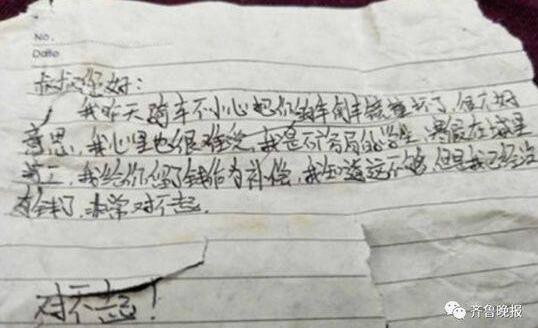 No.
Date
叔叔您好:
我昨天骑车不小心把你的车倒车镜撞坏了,很不好
意思,我心里也很难受,我是的学生,暑假在这里
工,我给你了钱作为补偿,我知道这不够,但是我已经没
有钱了,非常对不起.
对不起!
齐鲁晚报